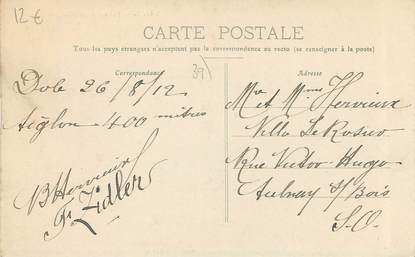 12 €
CARTE POSTALE
Tous les pays étrangers n'acceptent pas la correspondance au recto (se renseigner à la poste)
Correspondance
39
Adresse
Dole 26/8/12
Aiglon 400 mètres
B Hervieux
F. Zidler
Mr et Mme Hervieux
Villa Le
Rue Victor-Hugo
Aulnay s/ Bois
S.O.